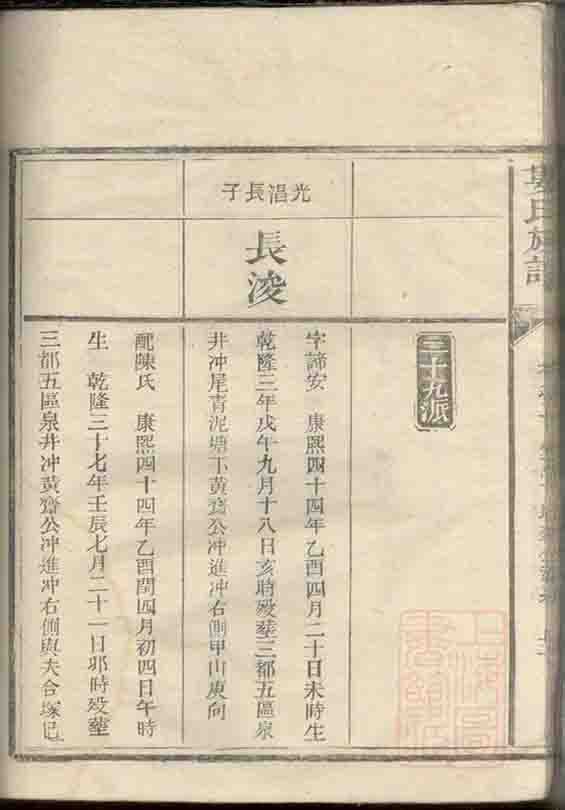 氏族譜
三十九派
光淐長子
長浚
字諦安　康熙四十四年乙酉四月二十日未時生
乾隆三年戊午九月十八日亥時歿塟三都五區泉
井冲尾青泥塘下黃齋公冲進冲右側甲山庚向
配陳氏　康熙四十四年乙酉閏四月初四日午時
生　乾隆三十七年壬辰七月二十一日卯時歿塟
三都五區泉井冲黃齋公冲進冲右側與夫合塚
上海圖書館藏